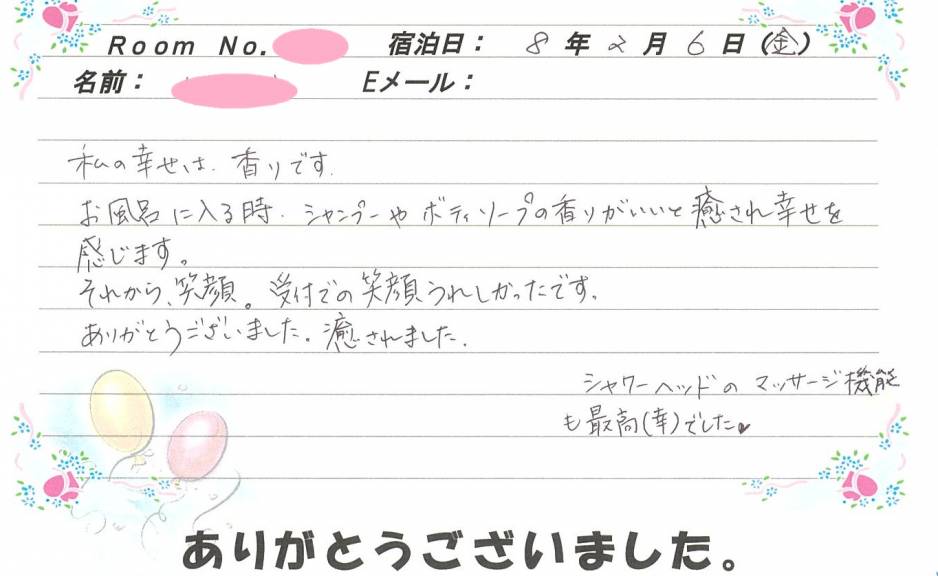 Room No. 宿泊日： 8 年 2 月 6 日（金）
名前： Eメール：
私の幸せは、香りです。
お風呂に入る時、シャンプーやボディソープの香りがいいと癒され幸せを
感じます。
それから、笑顔。受付での笑顔うれしかったです。
ありがとうございました。癒されました。
シャワーヘッドのマッサージ機能
も最高(幸)でした♥
ありがとうございました。